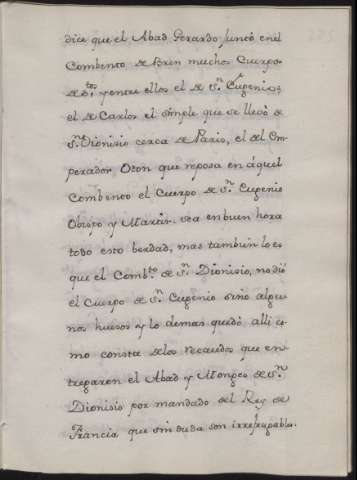 dice que el Abad Gerardo juntó en el
Combento de Bren muchos Cuerpos
de S.tos y entre ellos el de S.n Eugenio;
el de Carlos el simple que se llevó á
S.n Dionisio cerca de Paris, el del Em-
perador Oton que reposa en aquel
Combento el Cuerpo de S.n Eugenio
Obispo y Martir. sea en buen hora
todo esto berdad, mas tambien lo es
que el Comb.to de S.n Dionisio, no dió
el Cuerpo de S.n Eugenio sino algu-
nos huesos y lo demas quedó alli co-
mo consta de los recaudos que en-
tregaron el Abad y Monges de S.n
Dionisio por mandado del Rey de
Francia que sin duda son irrefragables.